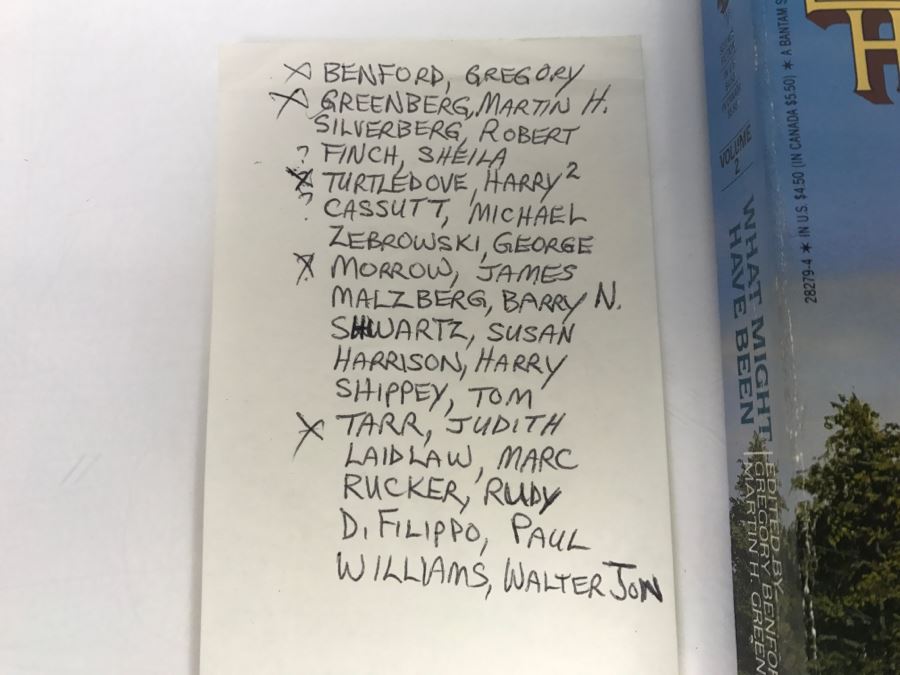 X BENFORD, GREGORY
X GREENBERG, MARTIN H.
SILVERBERG, ROBERT
? FINCH, SHEILA
X TURTLEDOVE, HARRY 2
? CASSUTT, MICHAEL
ZEBROWSKI, GEORGE
X MORROW, JAMES
MALZBERG, BARRY N.
SHWARTZ, SUSAN
HARRISON, HARRY
SHIPPEY, TOM
X TARR, JUDITH
LAIDLAW, MARC
RUCKER, RUDY
DI FILIPPO, PAUL
WILLIAMS, WALTER JON
VOLUME
2
WHAT MIGHT
HAVE BEEN
EDITED BY
GREGORY BENFOR
MARTIN H. GREEN
28279-4 * IN U.S. $4.50 (IN CANADA $5.50) * A BANTAM S